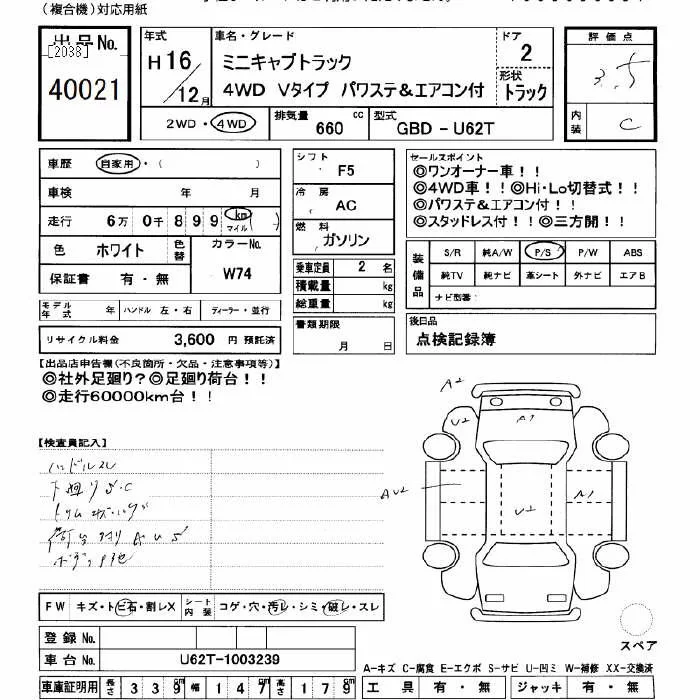 (複合機)対応用紙
出品No.
[2038]
40021
年式
H16/12月
車名・グレード
ミニキャブトラック
4WD Vタイプ パワステ&エアコン付
ドア
2
形状
トラック
評価点
3.5
内装
C
2WD・4WD
排気量 660 cc
型式 GBD-U62T
車歴 自家用・( )
車検 年 月
走行 6万 0千 8 9 9 km マイル ( )
色 ホワイト 色替
カラーNo. W74
保証書 有・無
モデル年式 年 ハンドル 左・右 ディーラー・並行
リサイクル料金 3,600 円 預託済
シフト F5
冷房 AC
燃料 ガソリン
乗車定員 2 名
積載量 kg
総重量 kg
書類期限 月 日
セールスポイント
◎ワンオーナー車!!
◎4WD車!!◎Hi・Lo切替式!!
◎パワステ&エアコン付!!
◎スタッドレス付!!◎三方開!!
装備品
S/R 純A/W P/S P/W ABS
純TV 純ナビ 革シート 外ナビ エアB
ナビ型番:
後日品
点検記録簿
【出品店申告欄(不良箇所・欠品・注意事項等)】
◎社外足廻り?◎足廻り荷台!!
◎走行60000km台!!
【検査員記入】
ハンドルスレ
下廻りS・C
A2
U2
A1
AU2
U2
A1
FW キズ・トビ石・割レX シート内装 コゲ・穴・汚レ・シミ・破レ・スレ
登録No.
車台No. U62T-1003239
スペア
A-キズ C-腐食 E-エクボ S-サビ U-凹ミ W-補修 XX-交換済
車庫証明用 長さ 339cm 幅 147cm 高さ 179cm
工具 有・無 ジャッキ 有・無